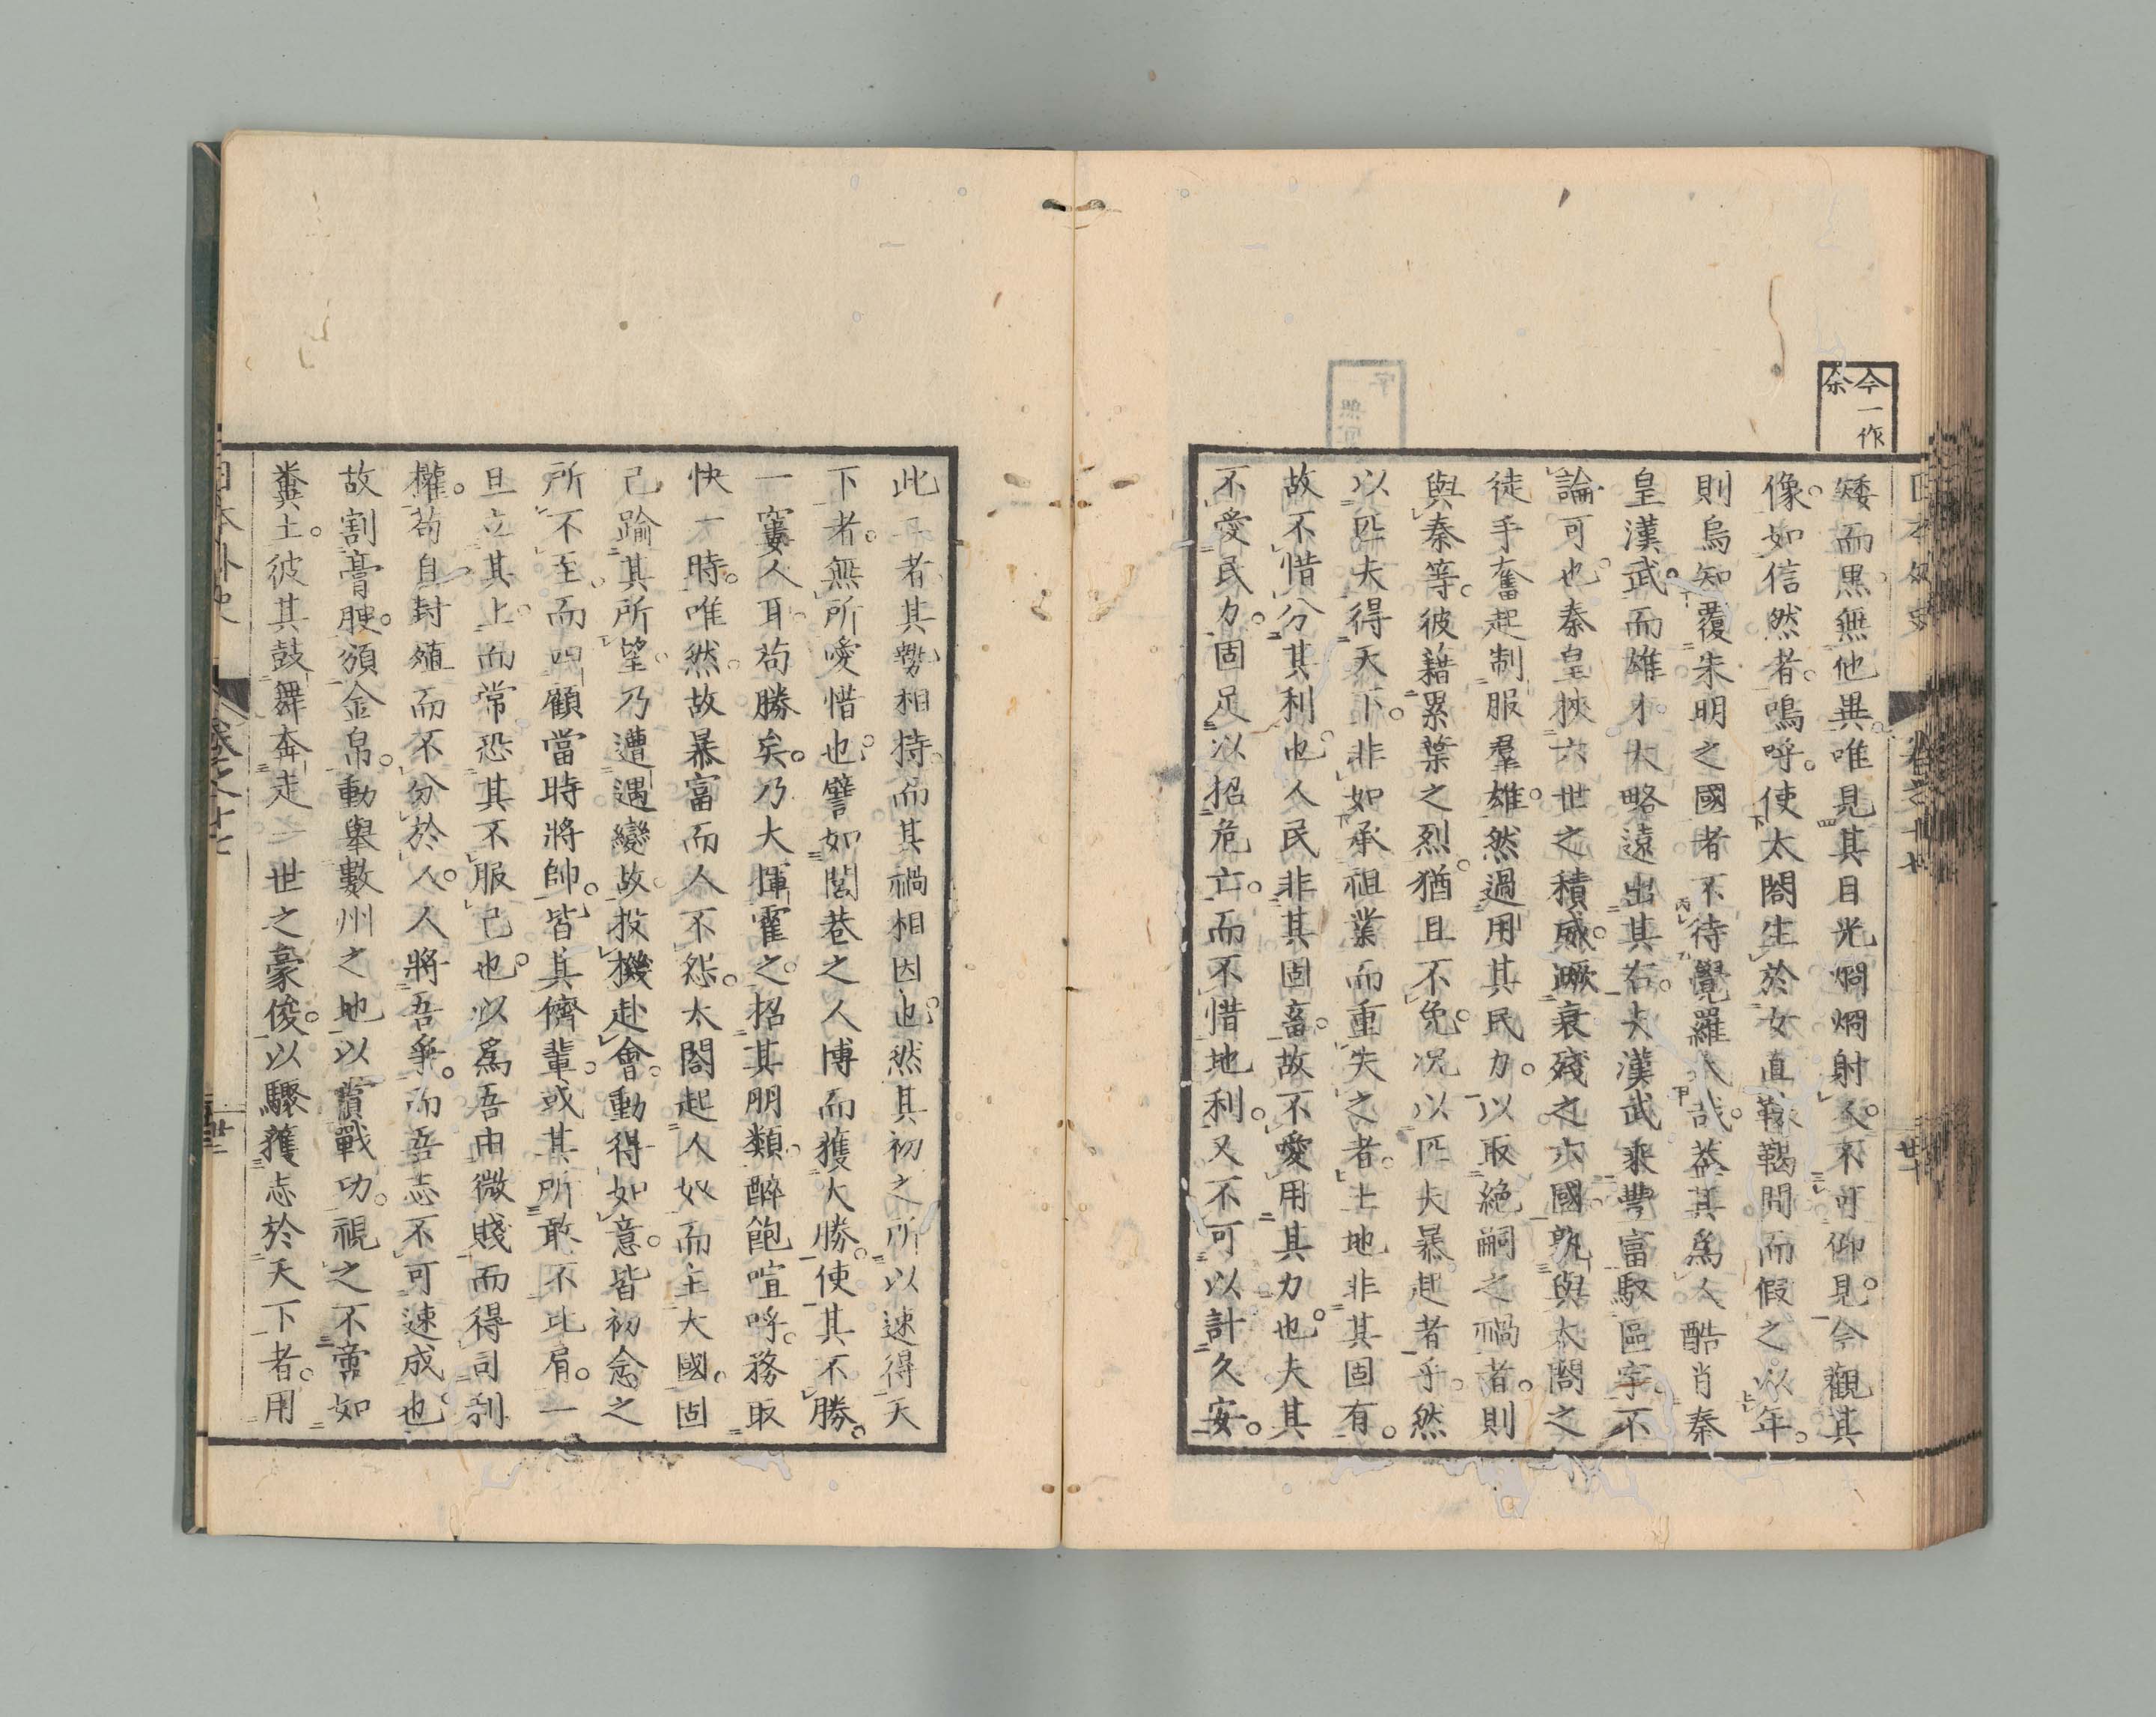 今一作
余
矮而黒。無他異。唯見其目光烱烱射人。不可仰見。今觀其
像。如信然者。嗚呼。使太閤生於女直靺鞨間。而假之以年。
則烏知覆朱明之國者不待覺羅氏哉。蓋其爲人酷肖秦
皇漢武。而雄才大略遠出其右。夫漢武乘豐富馭區宇。不
論可也。秦皇挾六世之積威。蹶衰殘之六國。孰與太閤之
徒手奮起制服羣雄。然過用其民力。以取絶嗣之禍者。則
與秦等。彼藉累葉之烈。猶且不免。况以匹夫暴起者乎。然
以匹夫得天下。非如承祖業而重失之者。土地非其固有。
故不惜分其利也。人民非其固畜。故不愛用其力也。夫其
不愛民力。固足以招危亡。而不惜地利。又不可以計久安。
此二者其勢相持。而其禍相因也。然其初之所以速得天
下者。無所愛惜也。譬如閭巷之人博而獲大勝。使其不勝。
一窶人耳。苟勝矣。乃大揮霍之。招其朋類。醉飽喧呼。務取
快一時。唯然。故暴富而人不怨。太閤起人奴而主大國。固
己踰其所望。乃遭遇變故。投機赴會。動得如意。皆初念之
所不至。而四顧當時將帥。皆其儕輩。或其所敢不比肩。一
旦立其上。而常恐其不服己也。以爲吾由微賤而得司利
權。苟自封殖而不分於人。人將吾爭。而吾志不可速成也。
故割膏腴。頒金帛。動舉數州之地以賞戰功。視之不啻如
糞土。彼其鼓舞奔走一世之豪俊。以驟獲志於天下者。用
日本外史
卷之十七